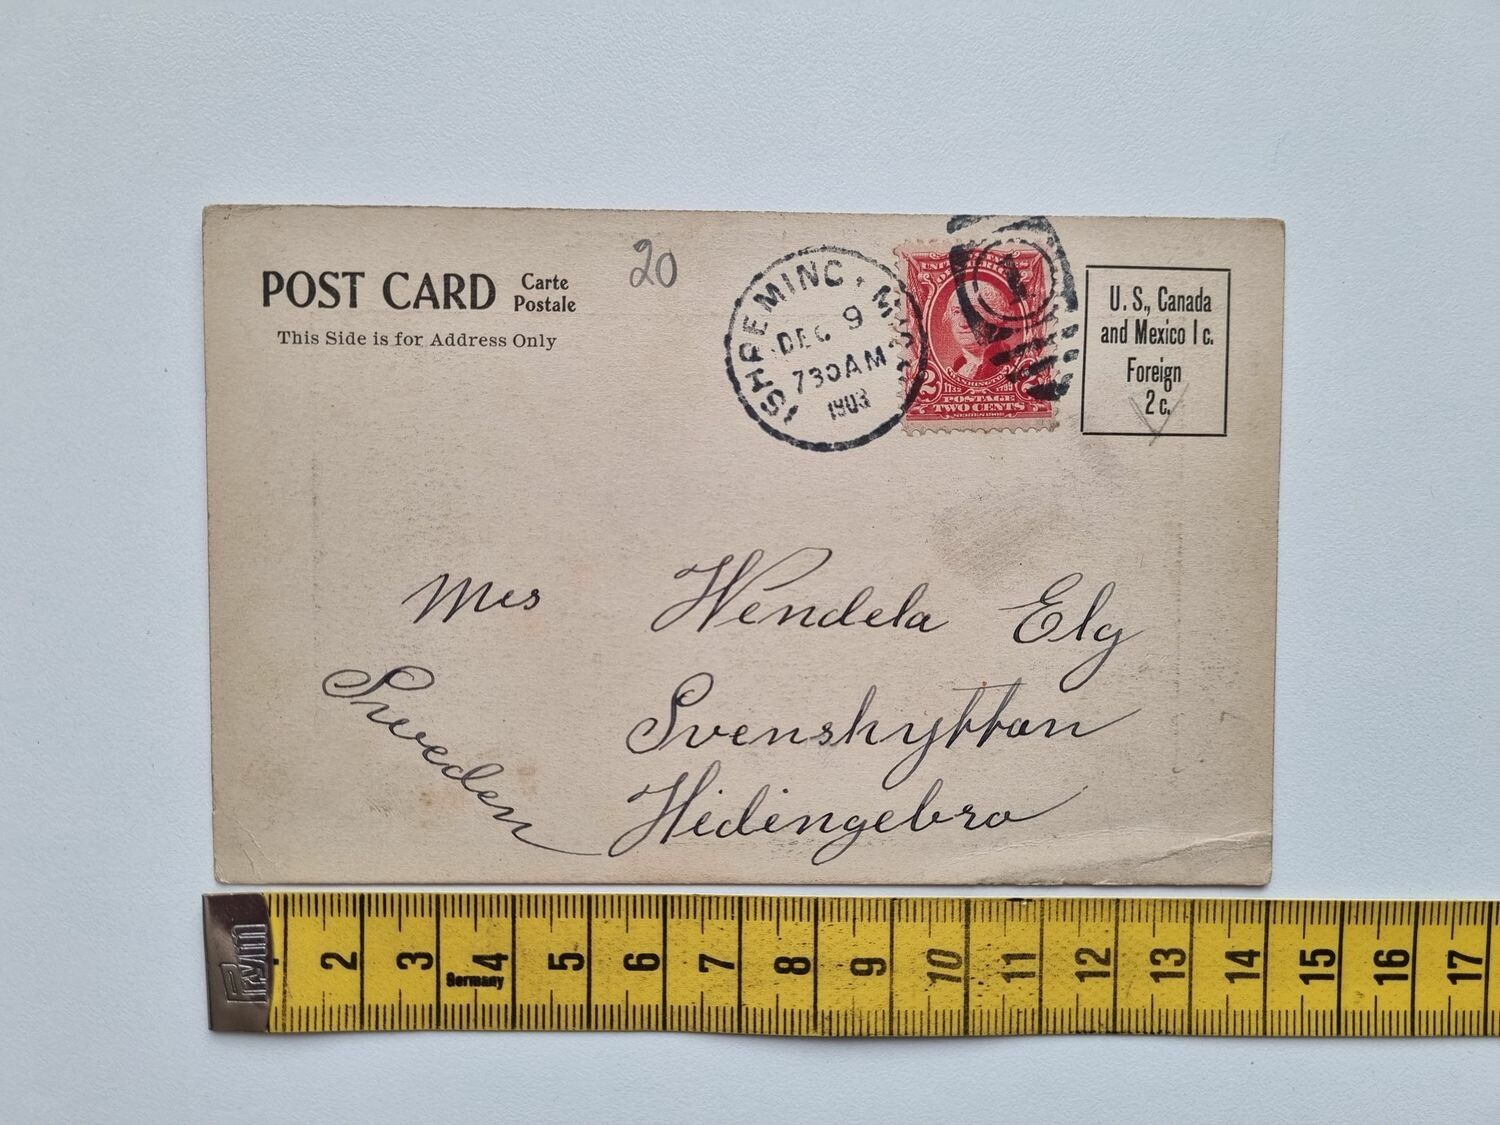 POST CARD Carte Postale
This Side is for Address Only
20
ISHPEMING · MICH.
DEC 9
730AM
1903
UNITED STATES OF AMERICA
WASHINGTON
1732 1799
2 2
POSTAGE
TWO CENTS
SERIES 1902
1
U. S., Canada
and Mexico 1 c.
Foreign
2 c.
Mrs Wendela Elg
Svenshyttan
Hidingebro
Sweden
Prym
Germany
2 3 4 5 6 7 8 9 10 11 12 13 14 15 16 17